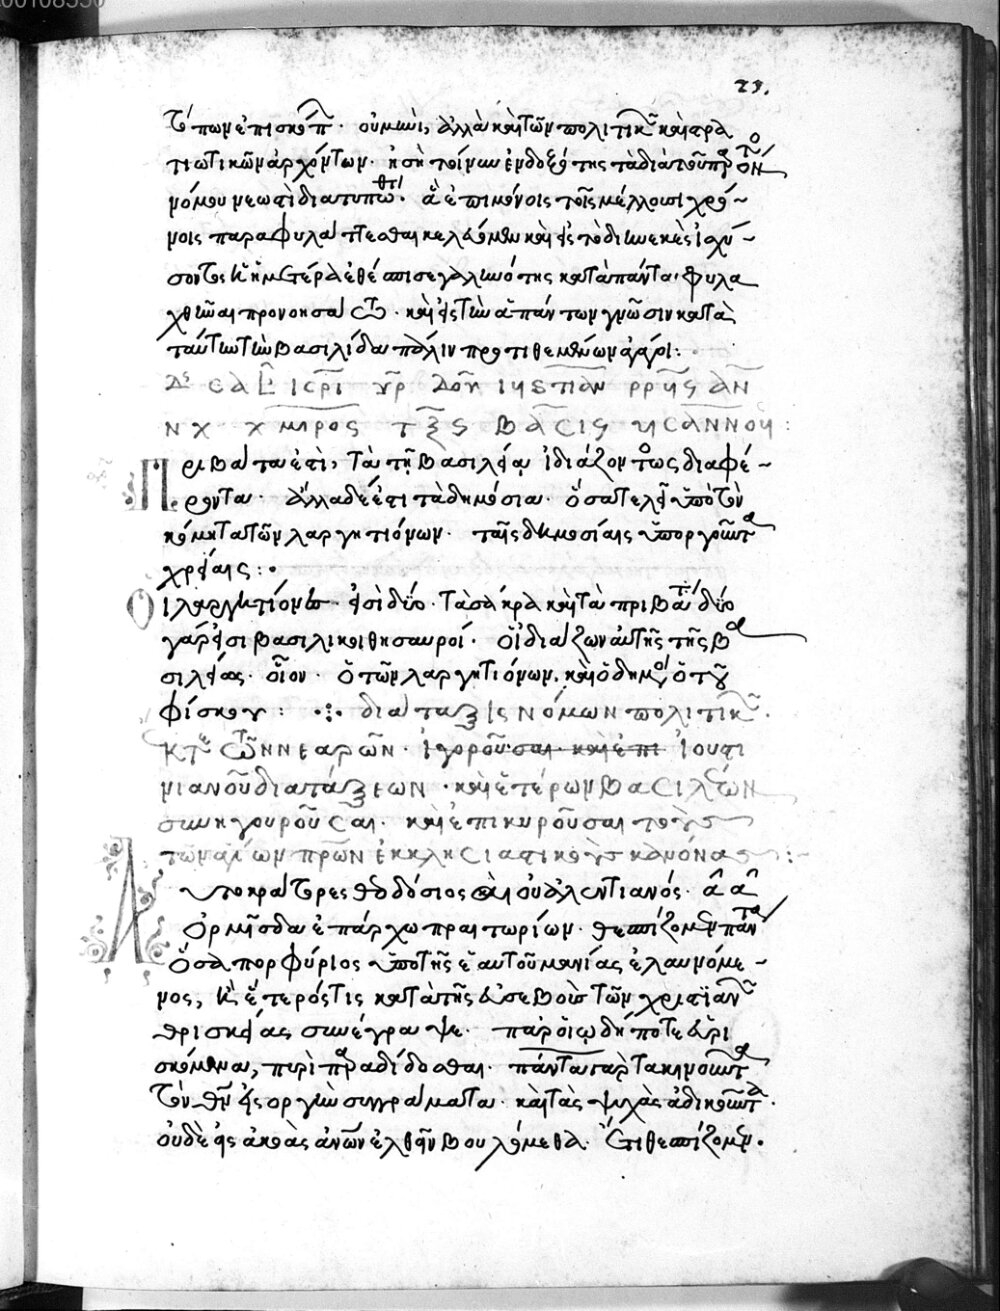 23.
τόπων ἐπισκόπ. οὐ μὴν, ἀλλὰ καὶ τῶν πολιτικῶν καὶ στρα
τιωτικῶν ἀρχόντων. ἡ σὴ τοίνυν ἐνδοξότης τὰ διὰ τοῦ παρόν
νόμου νεωστὶ διατυπωθέντ. ἃ ἐπὶ μόνοις τοῖς μέλλουσι χρό
νοις παραφυλάττεσθαι κελεύομεν καὶ εἰς τὸ διηνεκὲς ἰσχύ
οντος καὶ ἡ ἡμετέρα ἐθέσπισε γαληνότης κατὰ πάντα φυλα
χθῆναι προνοησάτω. καὶ εἰς τὴν ἁπάντων γνῶσιν κατὰ
ταύτην τὴν βασιλίδα πόλιν προτιθεμένων
πριβατα ἐστὶ, τὰ τῇ βασιλείᾳ ἰδιαζόντως διαφέ
ροντα. ἀλλὰ δὲ ἐστι τὰ δημόσια. ὅσα τελεῖ ὑπὸ τὸν
κόμητα τῶν λαργητιόνων. ταῖς δημοσίαις ὑπουργοῦντα
χρείαις:
Οἱ λαργητιονες εἰσὶ δύο. τὰ σάκρα καὶ τὰ πριβάτα δύο
γάρ εἰσι βασιλικοὶ θησαυροί. οἱ ἰδιάζων αὐτῆς τῆς βα
σιλείας. οἷον. ὁ τῶν λαργητιόνων. καὶ ὁ δημο, ὁ τοῦ
φίσκου: διαταξις νόμων πολιτικῶν.
ἐκ τῶν νεαρῶν. Ἰουστι
νιανοῦ διατάξεων. καὶ ἑτέρων βασιλέων
συνηγοροῦσαι. καὶ ἐπικυροῦσαι τοὺς
τῶν ἁγίων πρων ἐκκλησιαστικοὺς κανόνας:
Αὐτοκράτορες θεοδόσιος καὶ οὐαλεντιανός. ἀ ἀ
Ὁρμίσδα ἐπάρχω πραιτωρίων. θεσπίζομεν πάντα
ὅσα πορφύριος ὑπὸ τῆς ἑαυτοῦ μανίας ἐλαυνόμε
νος, καὶ ἕτερός τις κατὰ τῆς εὐσεβοῦς τῶν χριστιανῶν
θρησκείας συνέγραψε. παρ' οἱῳδήποτε εὑρι
σκόμενα, πυρὶ παραδίδοσθαι. πάντα γὰρ τὰ κινοῦντα
τὸν θν εἰς ὀργὴν συγγράμματα. καὶ τὰς ψυχὰς ἀδικοῦντα.
οὐδὲ εἰς ἀκοὰς ἀνων ἐλθεῖν βουλόμεθα. Ἔτι θεσπίζομεν.